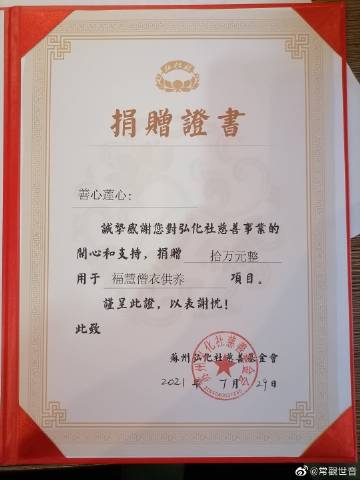 弘化社
捐贈證書
善心蓮心：
誠摯感謝您對弘化社慈善事業的
關心和支持，捐贈 拾万元整
用于 福慧僧衣供养 項目。
謹呈此證，以表謝忱！
此致
蘇州弘化社慈善基金會
2021年7月29日
苏州弘化社慈善基金会
@常觀世音